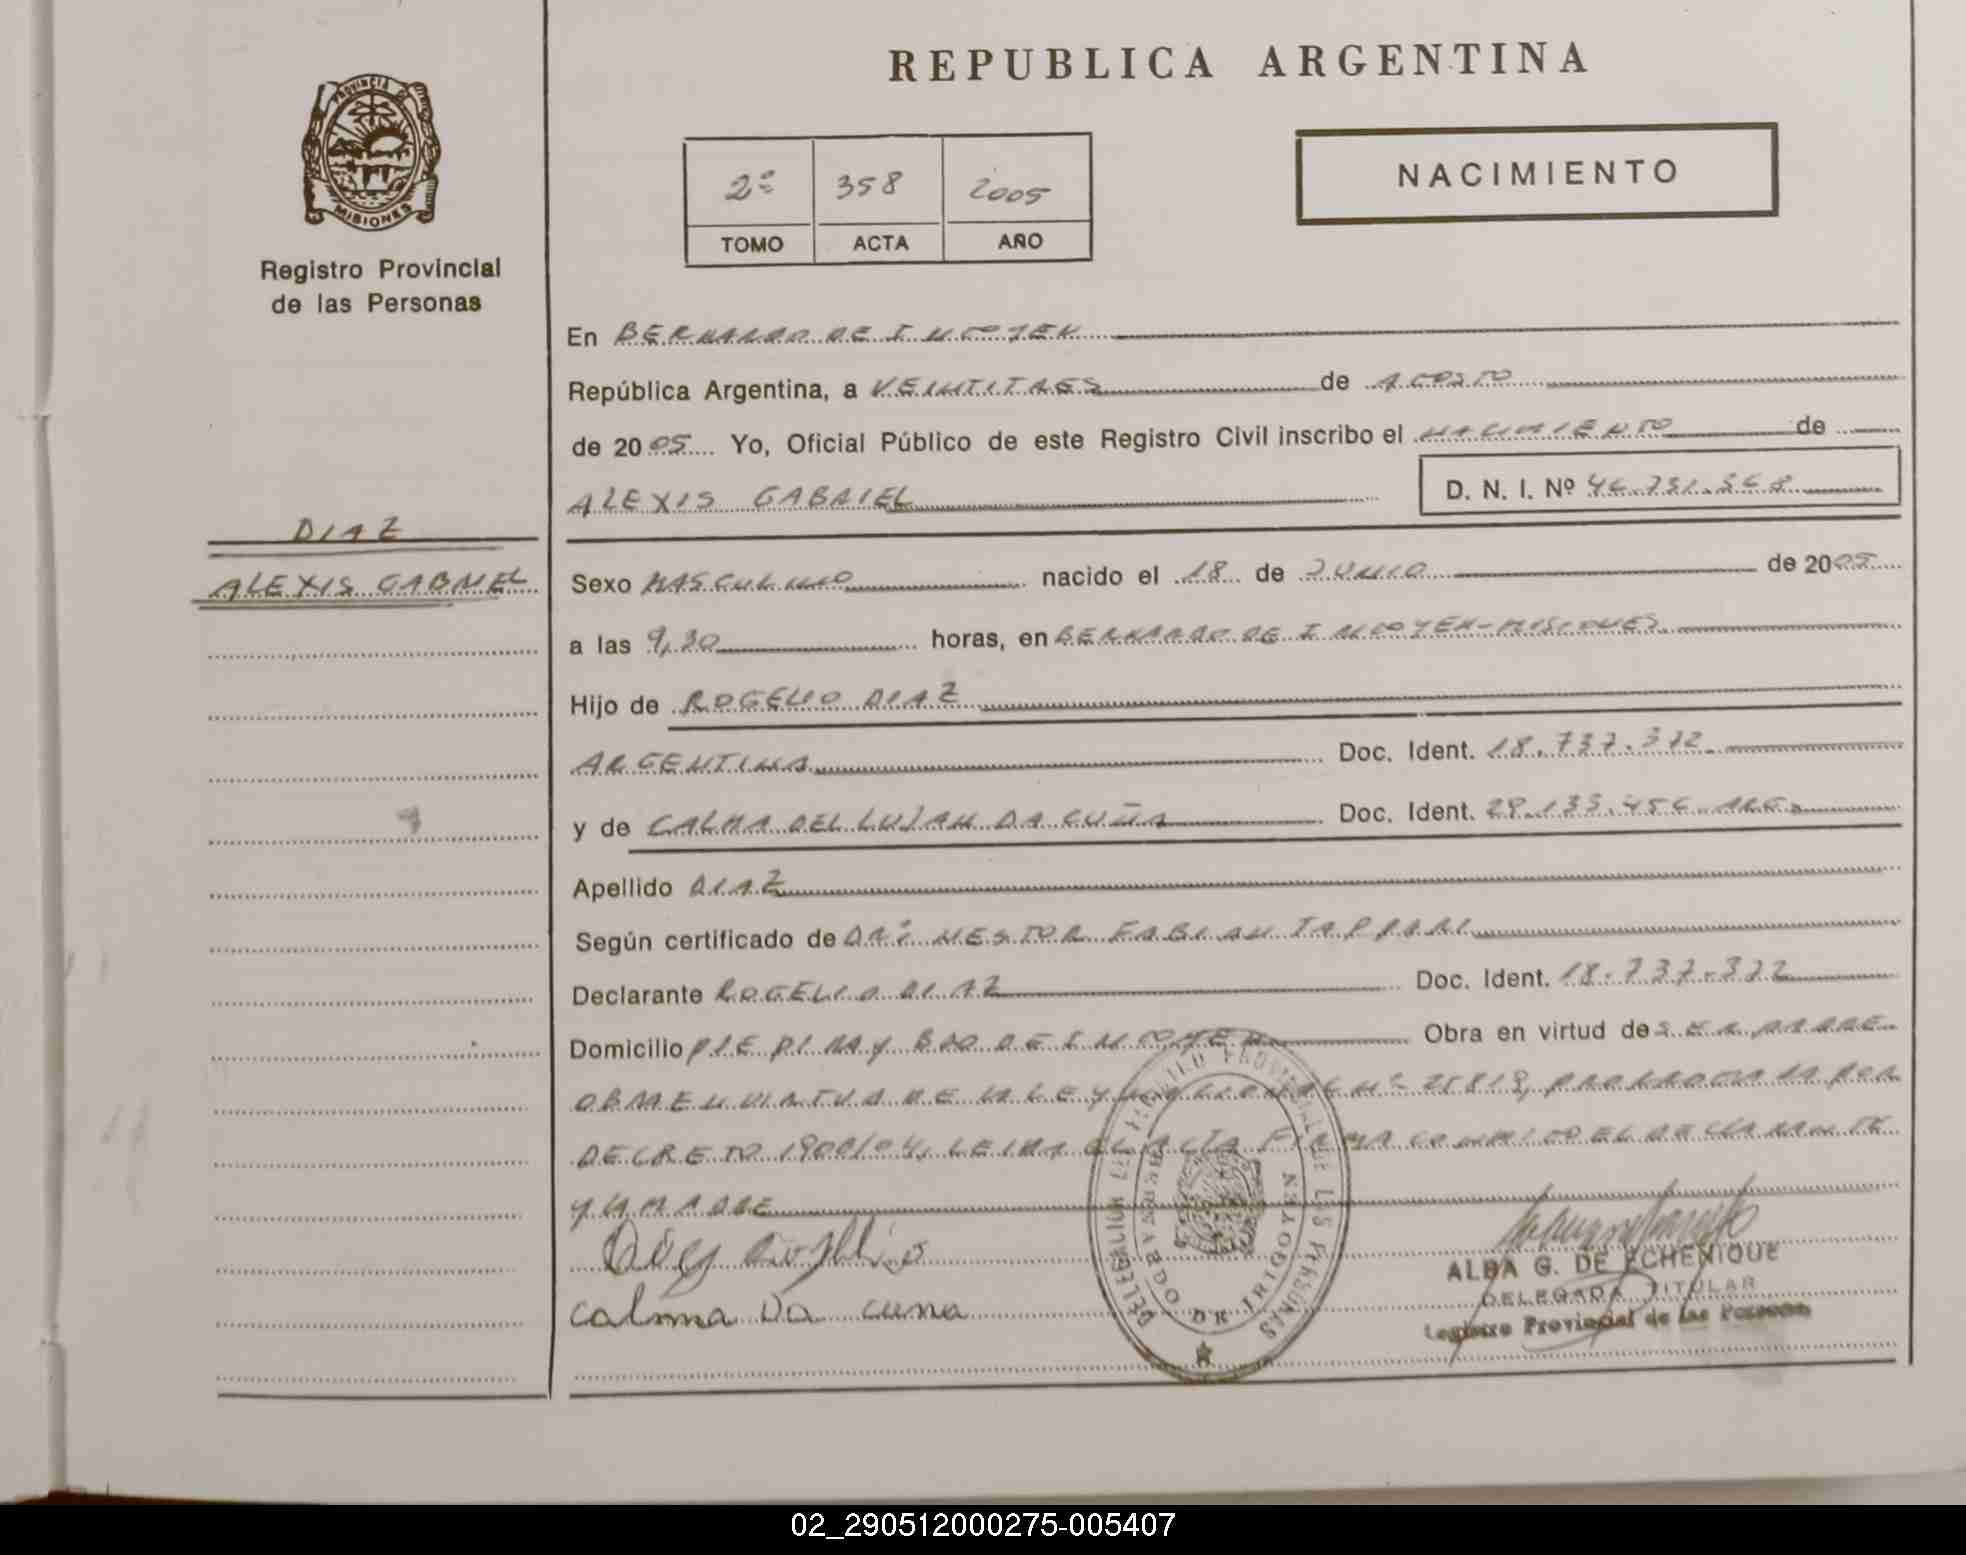 REPUBLICA ARGENTINA
PROVINCIA DE MISIONES
Registro Provincial
de las Personas
2º 358 2005
TOMO ACTA AÑO
NACIMIENTO
En BERNARDO DE IRIGOYEN
República Argentina, a VEINTITRES de AGOSTO
de 2005 Yo, Oficial Público de este Registro Civil inscribo el NACIMIENTO de
ALEXIS GABRIEL D. N. I. Nº 46.731.568
DIAZ
ALEXIS GABRIEL
Sexo MASCULINO nacido el 18 de JUNIO de 2005
a las 9,30 horas, en BERNARDO DE IRIGOYEN-MISIONES
Hijo de ROGELIO DIAZ
ARGENTINA Doc. Ident. 18.737.372
y de CALMA DEL LUJAN DA CUÑA Doc. Ident. 29.135.456 ARG.
Apellido DIAZ
Según certificado de NESTOR FABIAN
Declarante ROGELIO DIAZ Doc. Ident. 18.737.372
Domicilio BDO DE IRIGOYEN Obra en virtud de SER PADRE
OBRA EN VIRTUD DE LA LEY NACIONAL Nº 25819, PRORROGADA POR
DECRETO 1900/04, LEIDA EL ACTA FIRMA CONMIGO EL DECLARANTE
Y LA MADRE
calma Da cuna
DE IRIGOYEN
ALBA G. DE ECHENIQUE
DELEGADA TITULAR
Registro Provincial de las Personas
02_290512000275-005407